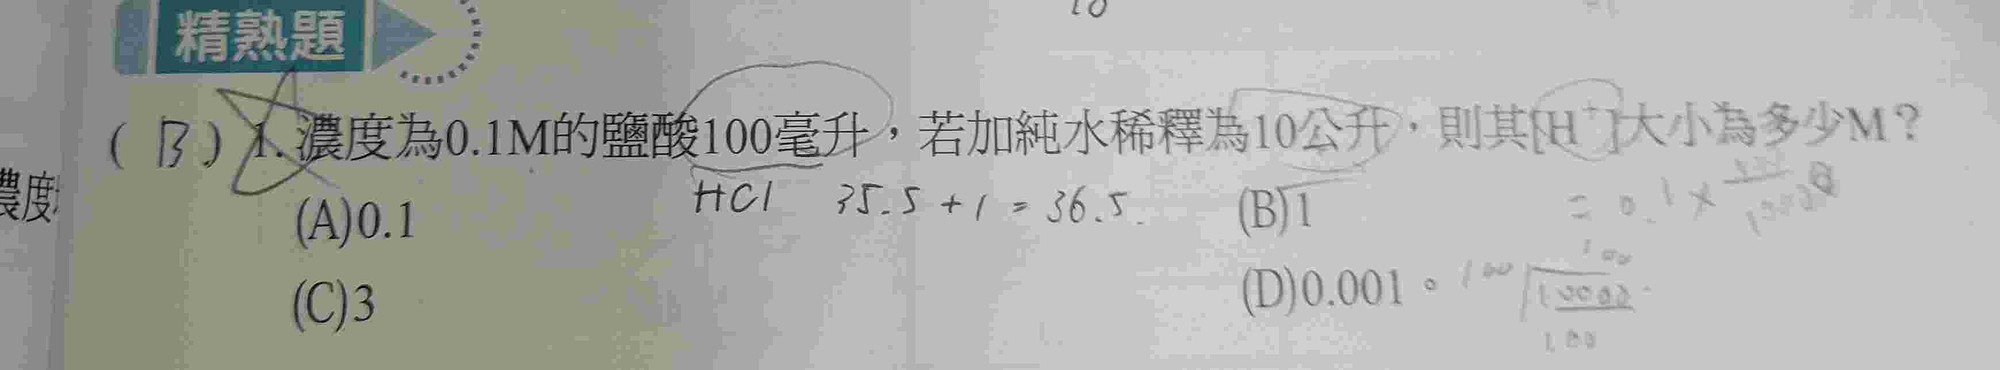 10
精熟題
( B ) 1. 濃度為0.1M的鹽酸100毫升，若加純水稀釋為10公升，則其[H⁺]大小為多少M？
濃度
HCl 35.5 + 1 = 36.5.
= 0.1 ×
(A)0.1 (B)1
100
(C)3 (D)0.001。 100 10000
100